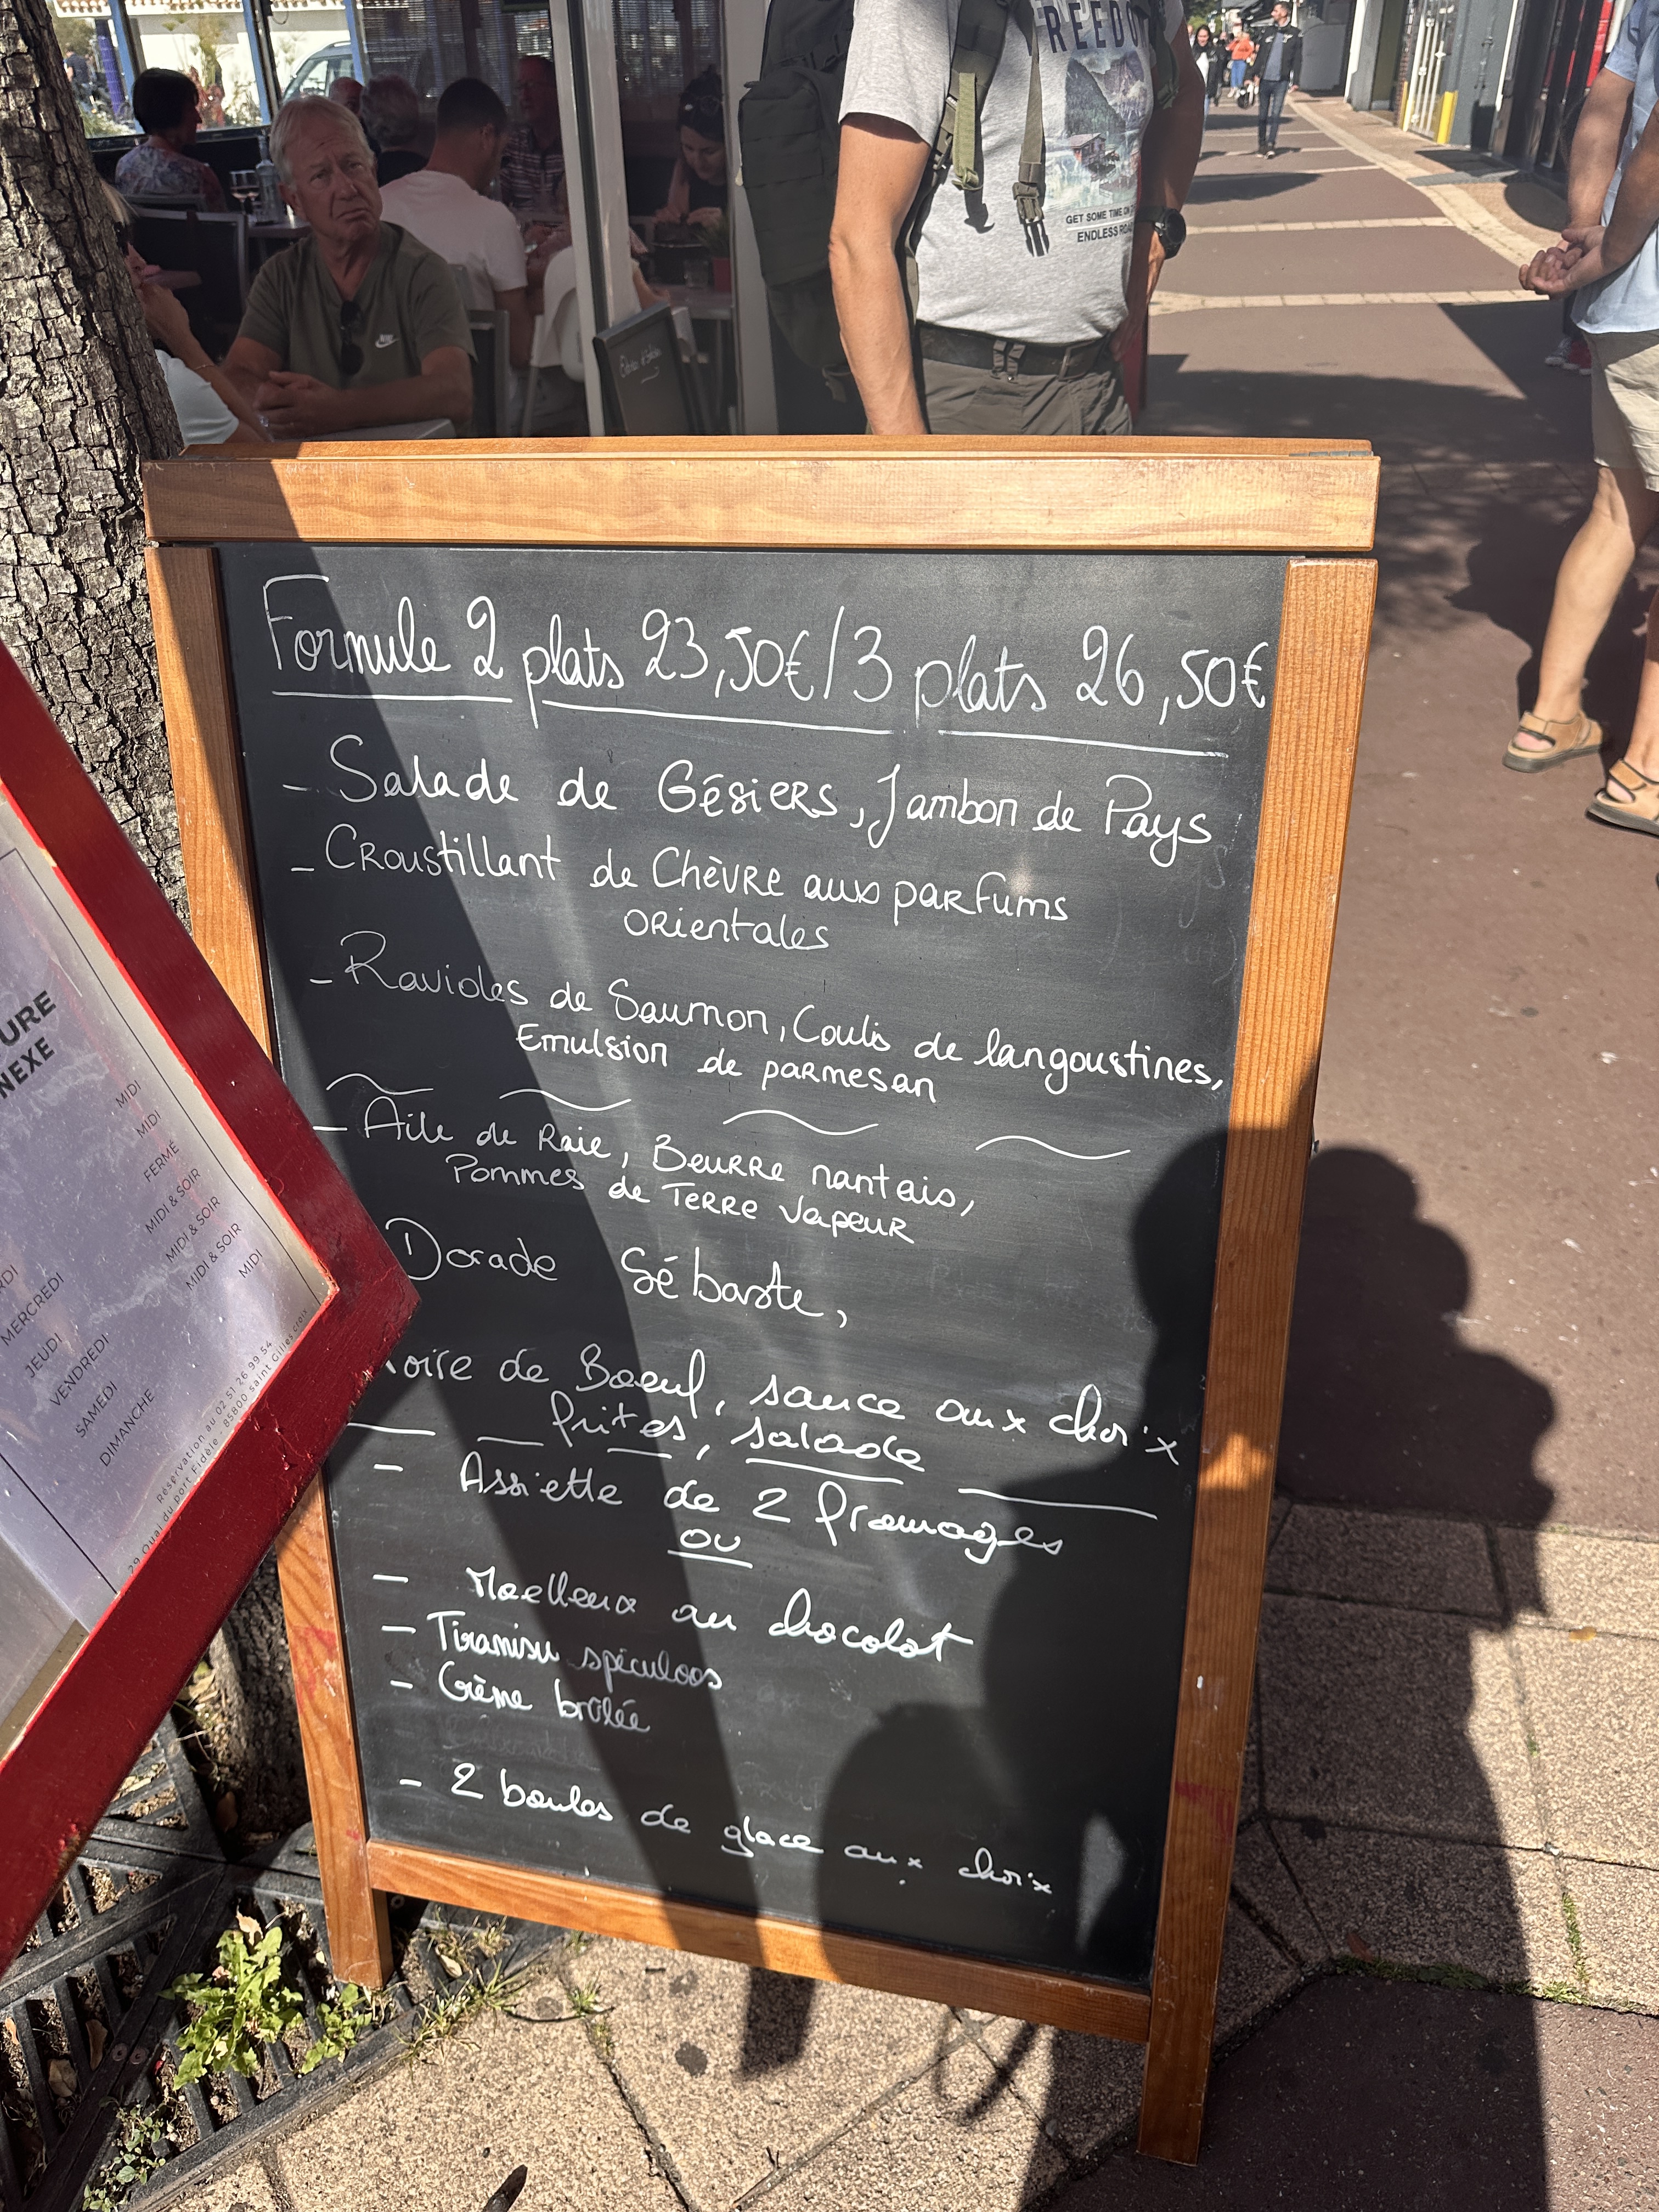 FREEDO
GET SOME TIME ON T
ENDLESS ROA
Formule 2 plats 23,50€/3 plats 26,50€
- Salade de Gésiers, Jambon de Pays
- Croustillant de Chèvre aux parfums
orientales
- Ravioles de Saumon, Coulis de langoustines,
Emulsion de parmesan
- Aile de Raie, Beurre nantais,
Pommes de Terre Vapeur
Dorade Sébaste,
oire de Boeuf, sauce aux choix
frites, salade
- Assiette de 2 fromages
ou
- Moelleux au chocolat
- Tiramisu spéculoos
- Crème brûlée
- 2 boules de glace aux choix
URE
NEXE
MIDI
MIDI
RDI FERMÉ
MERCREDI MIDI & SOIR
JEUDI MIDI & SOIR
VENDREDI MIDI & SOIR
SAMEDI MIDI
DIMANCHE
Réservation au 02 51 26 99 54
29 Quai du port Fidèle - 85800 Saint Gilles croix